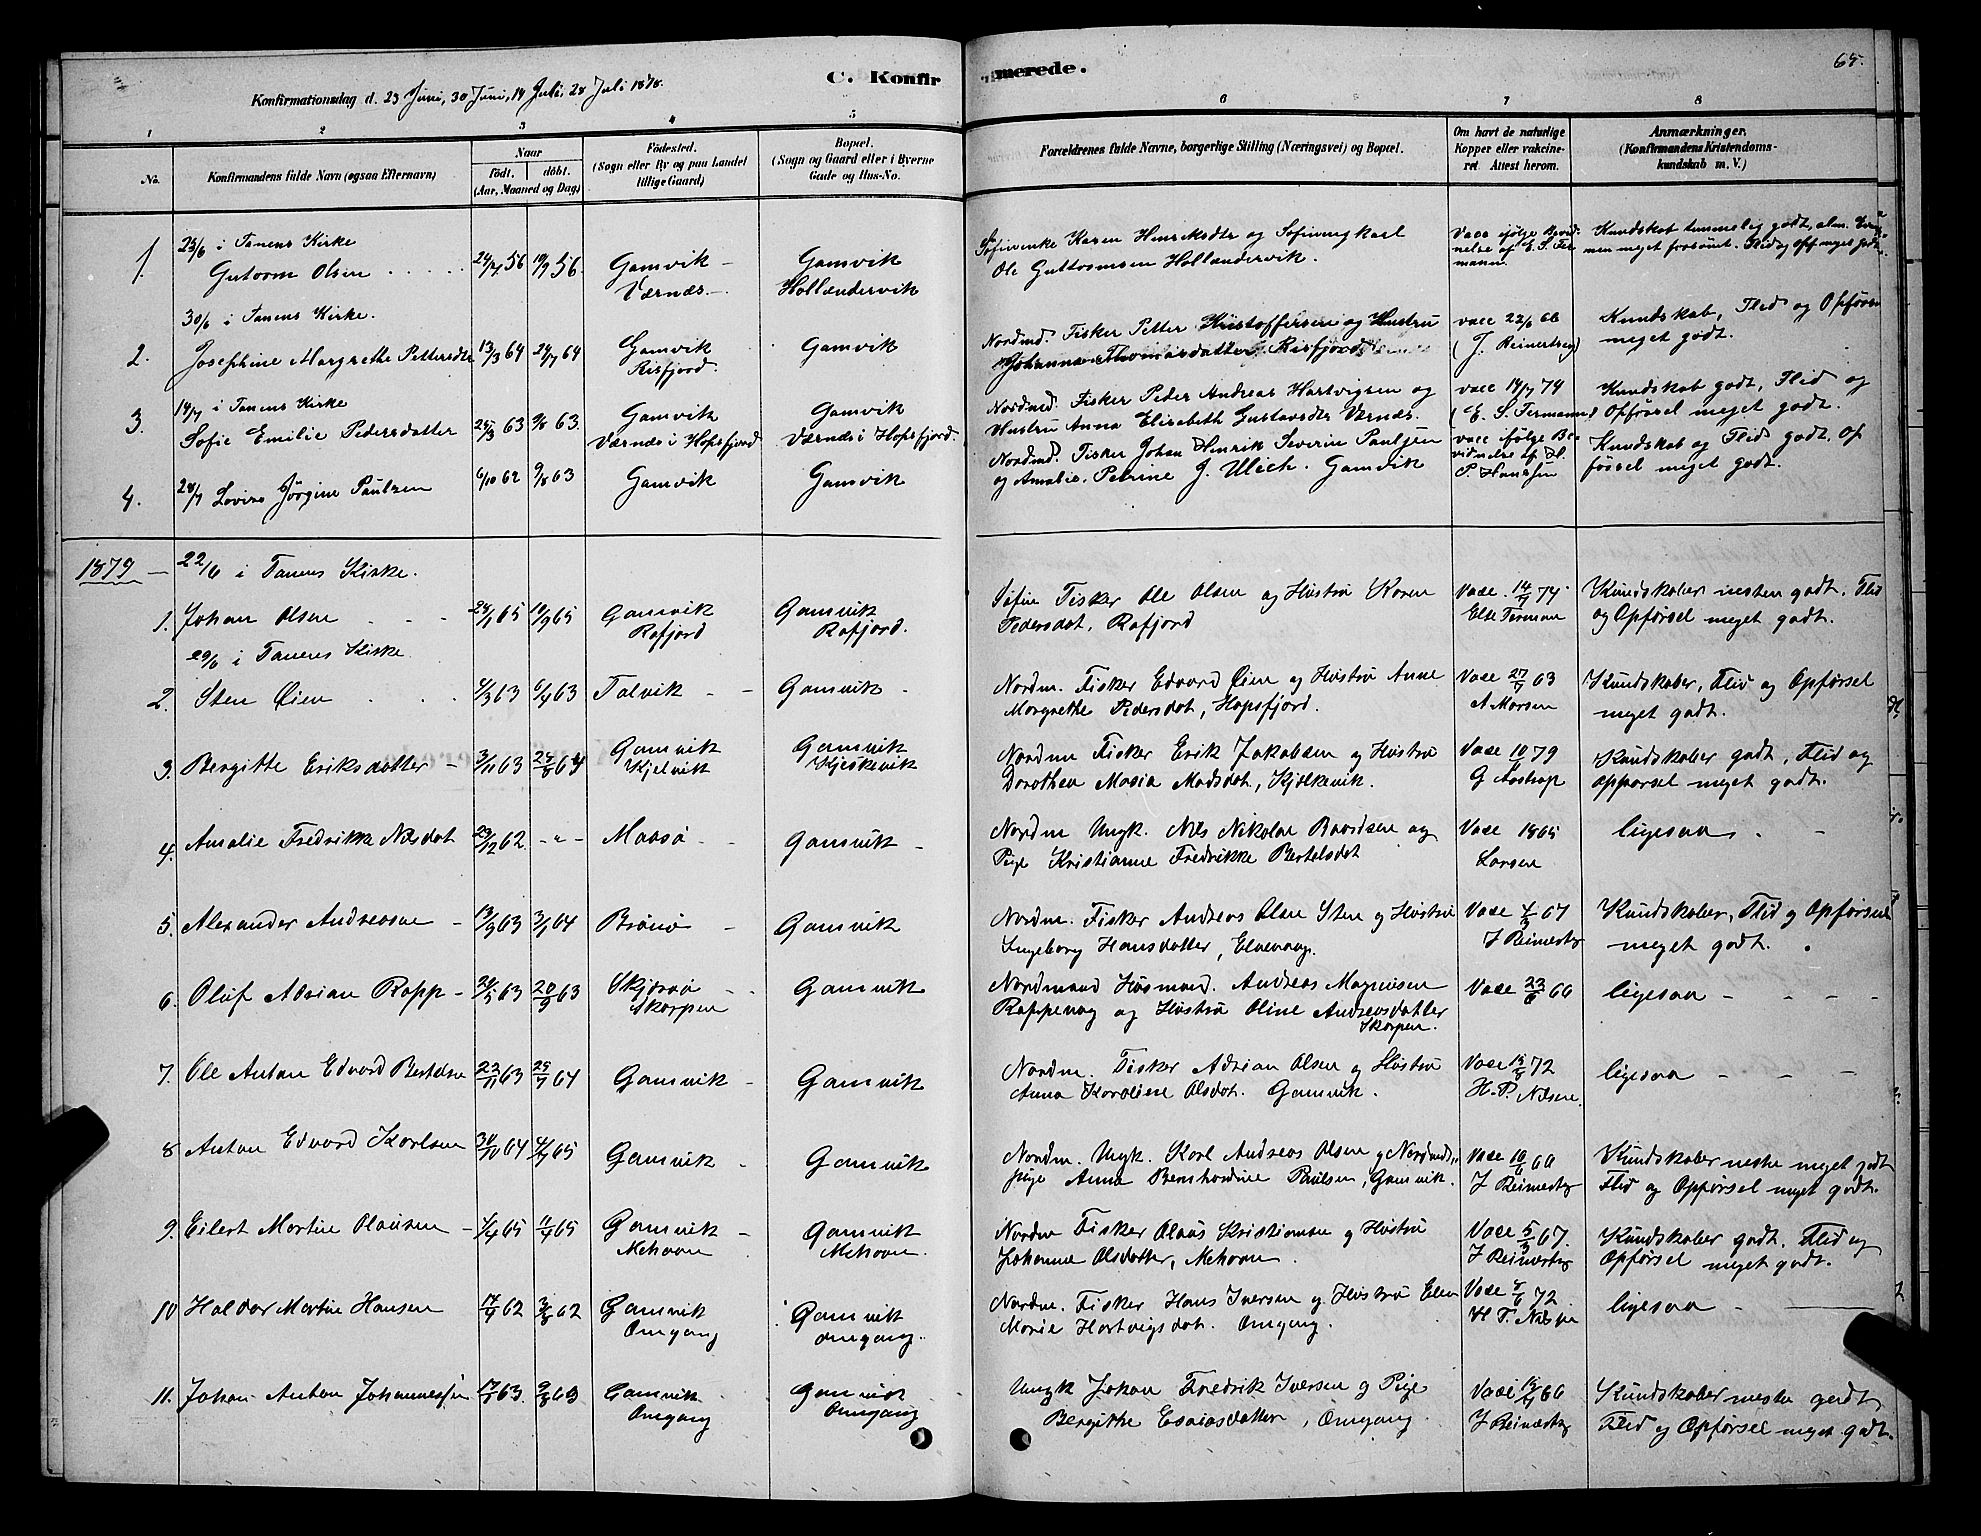 C. Konfirmerede.
65.
Konfirmationsdag d. 23 Juni, 30 Juni, 14 Juli, 28 Juli 1878.
1 2 3 4 5 6 7 8
No.
Konfirmandens fulde Navn (ogsaa Efternavn)
Naar
født. døbt.
(Aar, Maaned og Dag)
Fødested.
(Sogn eller By og paa Landet
tillige Gaard)
Bopæl.
(Sogn og Gaard eller i Byerne
Gade og Hus-No.
Forældrenes fulde Navne, borgerlige Stilling (Næringsvei) og Bopæl.
Om havt de naturlige
Kopper eller vakcine-
ret Attest herom.
Anmærkninger.
(Konfirmandens Kristendoms-
kundskab m. V.)
23/6 i Tanens Kirke
1. Gutorm Olsen 56 56 Gamvik Værnæs Gamvik Hollændervik
Karen Henriksdtr og
Ole Guttormsen Hollændervik.
Vacc ifølge Bevid-
nelse af E. S. Fer-
mann.
Kundskab temmelig godt,
meget forsømt. Flid og Opf meget godt
30/6 i Tanens Kirke.
2. Josephine Margrethe Pettersdtr 13/3 64 24/7 64 Gamvik Risfjord. Gamvik
Nordmd. Fisker Petter Kristoffersen og Hustru
Johanna Thomasdatter, Risfjord
vacc 22/6 66
(J. Reinertsen)
Kundskab, Flid og Opførsel
meget godt.
14/7 i Tanens Kirke
3. Sofie Emilie Pedersdatter 63 63 Gamvik Værnæs i Hopsfjord Gamvik Værnæs i Hopsfjord.
Nordmd. Fisker Peder Andreas Hartvigsen og
Hustru Anna Elisabeth Gustavsdtr Værnæs.
vacc 14/7 74
(E. S. Fermann)
Kundskab godt, Flid og
Opførsel meget godt.
4. 28/7 Lovise Jørgine Paulsen 6/10 62 9/8 63 Gamvik Gamvik
Nordmd. Fisker Johan Henrik Severin Paulsen
og Amalie Petrine J. Ulich. Gamvik
vacc ifølge Be-
vidnelse af H.
P. Hansen
Kundskab og Flid godt. Op
førsel meget godt.
1879 — 22/6 i Tanens Kirke.
1. Johan Olsen 65 65 Gamvik Rafjord Gamvik Rafjord.
Fisker Ole Olsen og Hustru Karen
Pedersdat, Rafjord
Vacc. 14/7 74
Else Ferman
Kundskaber nesten godt. Flid
og Opførsel meget godt.
29/6 i Tanens Kirke
2. Sten Øien 4/3 63 6/4 63 Talvik Gamvik
Nordm. Fisker Edvard Øien og Hustru Anne
Margrethe Pedersdat, Hopsfjord.
Vacc 27/7 63
A Marsen
Kundskaber, Flid og Opførsel
meget godt.
3. Bergitte Eriksdatter 63 64 Gamvik Kjelvik Gamvik
Nordm Fisker Erik Jakobsen og Hustru
Dorothea Maria Madsdat, Kjølkevik.
Vacc 79
G Aastrup
Kundskaber godt, Flid og
Opførsel meget godt.
4. Amalie Fredrikke Nilsdat 23/12 62 - " - Maasø Gamvik
Nordm Ungk. Nils Nikolai Baardsen og
Pige Kristianne Fredrikke Bertelsdat
Vacc 1865
Larsen
ligesaa
5. Alexander Andreasen 13/9 63 3/1 64 Brønø Gamvik
Nordm. Fisker Andreas Olsen Sten og Hustru
Ingeborg Hansdatter, Elvevaag.
Vacc 4/3 67
J Reinertsg
Kundskaber, Flid og Opførsel
meget godt.
6. Oluf Adrian Rapp 63 20/9 63 Skjærvø Skorpen Gamvik
Nordmand Husmand. Andreas Magnusen
Rappenog og Hustru Oline Andreasdatter
Skorpen.
Vacc 23/6 66
ligesaa
7. Ole Anton Edvard Bertelsen 22/11 63 64 Gamvik Gamvik
Nordm. Fisker Adrian Olsen og Hustru
Anna Karoline Olsdat. Gamvik.
Vacc 72
H. P. Nilsen.
ligesaa
8 Anton Edvard Karlsen 64 65 Gamvik Gamvik
Nordm. Ungk. Karl Andreas Olsen og Nordmds.
pige Anna Bernhardine Paulsen, Gamvik.
Vacc 66
J Reinertsg
Kundskaber nesten meget godt
Flid og Opførsel meget godt.
9. Eilert Martin Olausen 65 65 Gamvik Mehavn Gamvik Mehavn.
Nordm Fisker Olaus Kristiansen og Hustru
Johanna Olsdatter, Mehavn.
Vacc 5/3 67.
J Reinertsg
Kundskaber godt. Flid og
Opførsel meget godt.
10 Haldor Martin Hansen 62 62 Gamvik Omgang Gamvik Omgang.
Nordm. Fisker Hans Iversen og Hustru Elen
Marie Hartvigsdat. Omgang.
Vacc 72
H P. Nilsen
ligesaa
11. Johan Anton Johannessen 63. 63 Gamvik Omgang Gamvik Omgang
Ungk Johan Fredrik Iversen og Pige
Bergitte Esaiasdatter, Omgang.
Vacc 66
J Reinertsg
Kundskaber nesten godt
Flid og Opførsel meget godt.